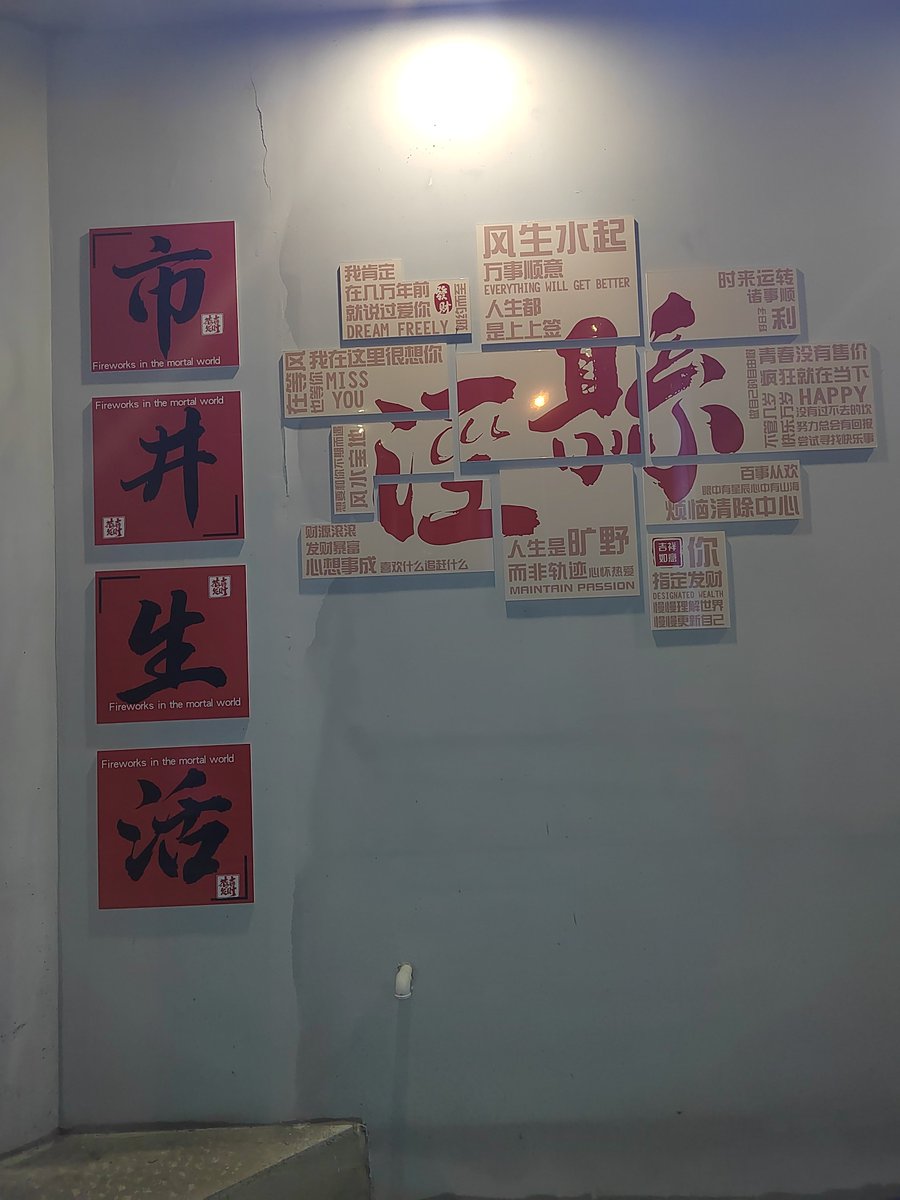 市
Fireworks in the mortal world
Fireworks in the mortal world
井
生
Fireworks in the mortal world
Fireworks in the mortal world
活
我肯定
在几万年前
就说过爱你
DREAM FREELY
發財
风生水起
万事顺意
EVERYTHING WILL GET BETTER
人生都
是上上签
时来运转
诸事顺
利
在等风
也等你
我在这里很想你
MISS
YOU
青春没有售价
疯狂就在当下
HAPPY
没有过不去的坎
努力总会有回报
尝试寻找快乐事
风水宝地
财源滚滚
发财暴富
心想事成 喜欢什么追赶什么
人生是旷野
而非轨迹 心怀热爱
MAINTAIN PASSION
百事从欢
眼中有星辰心中有山海
烦恼清除中心
吉祥
如意
你
指定发财
DESIGNATED WEALTH
慢慢理解世界
慢慢更新自己